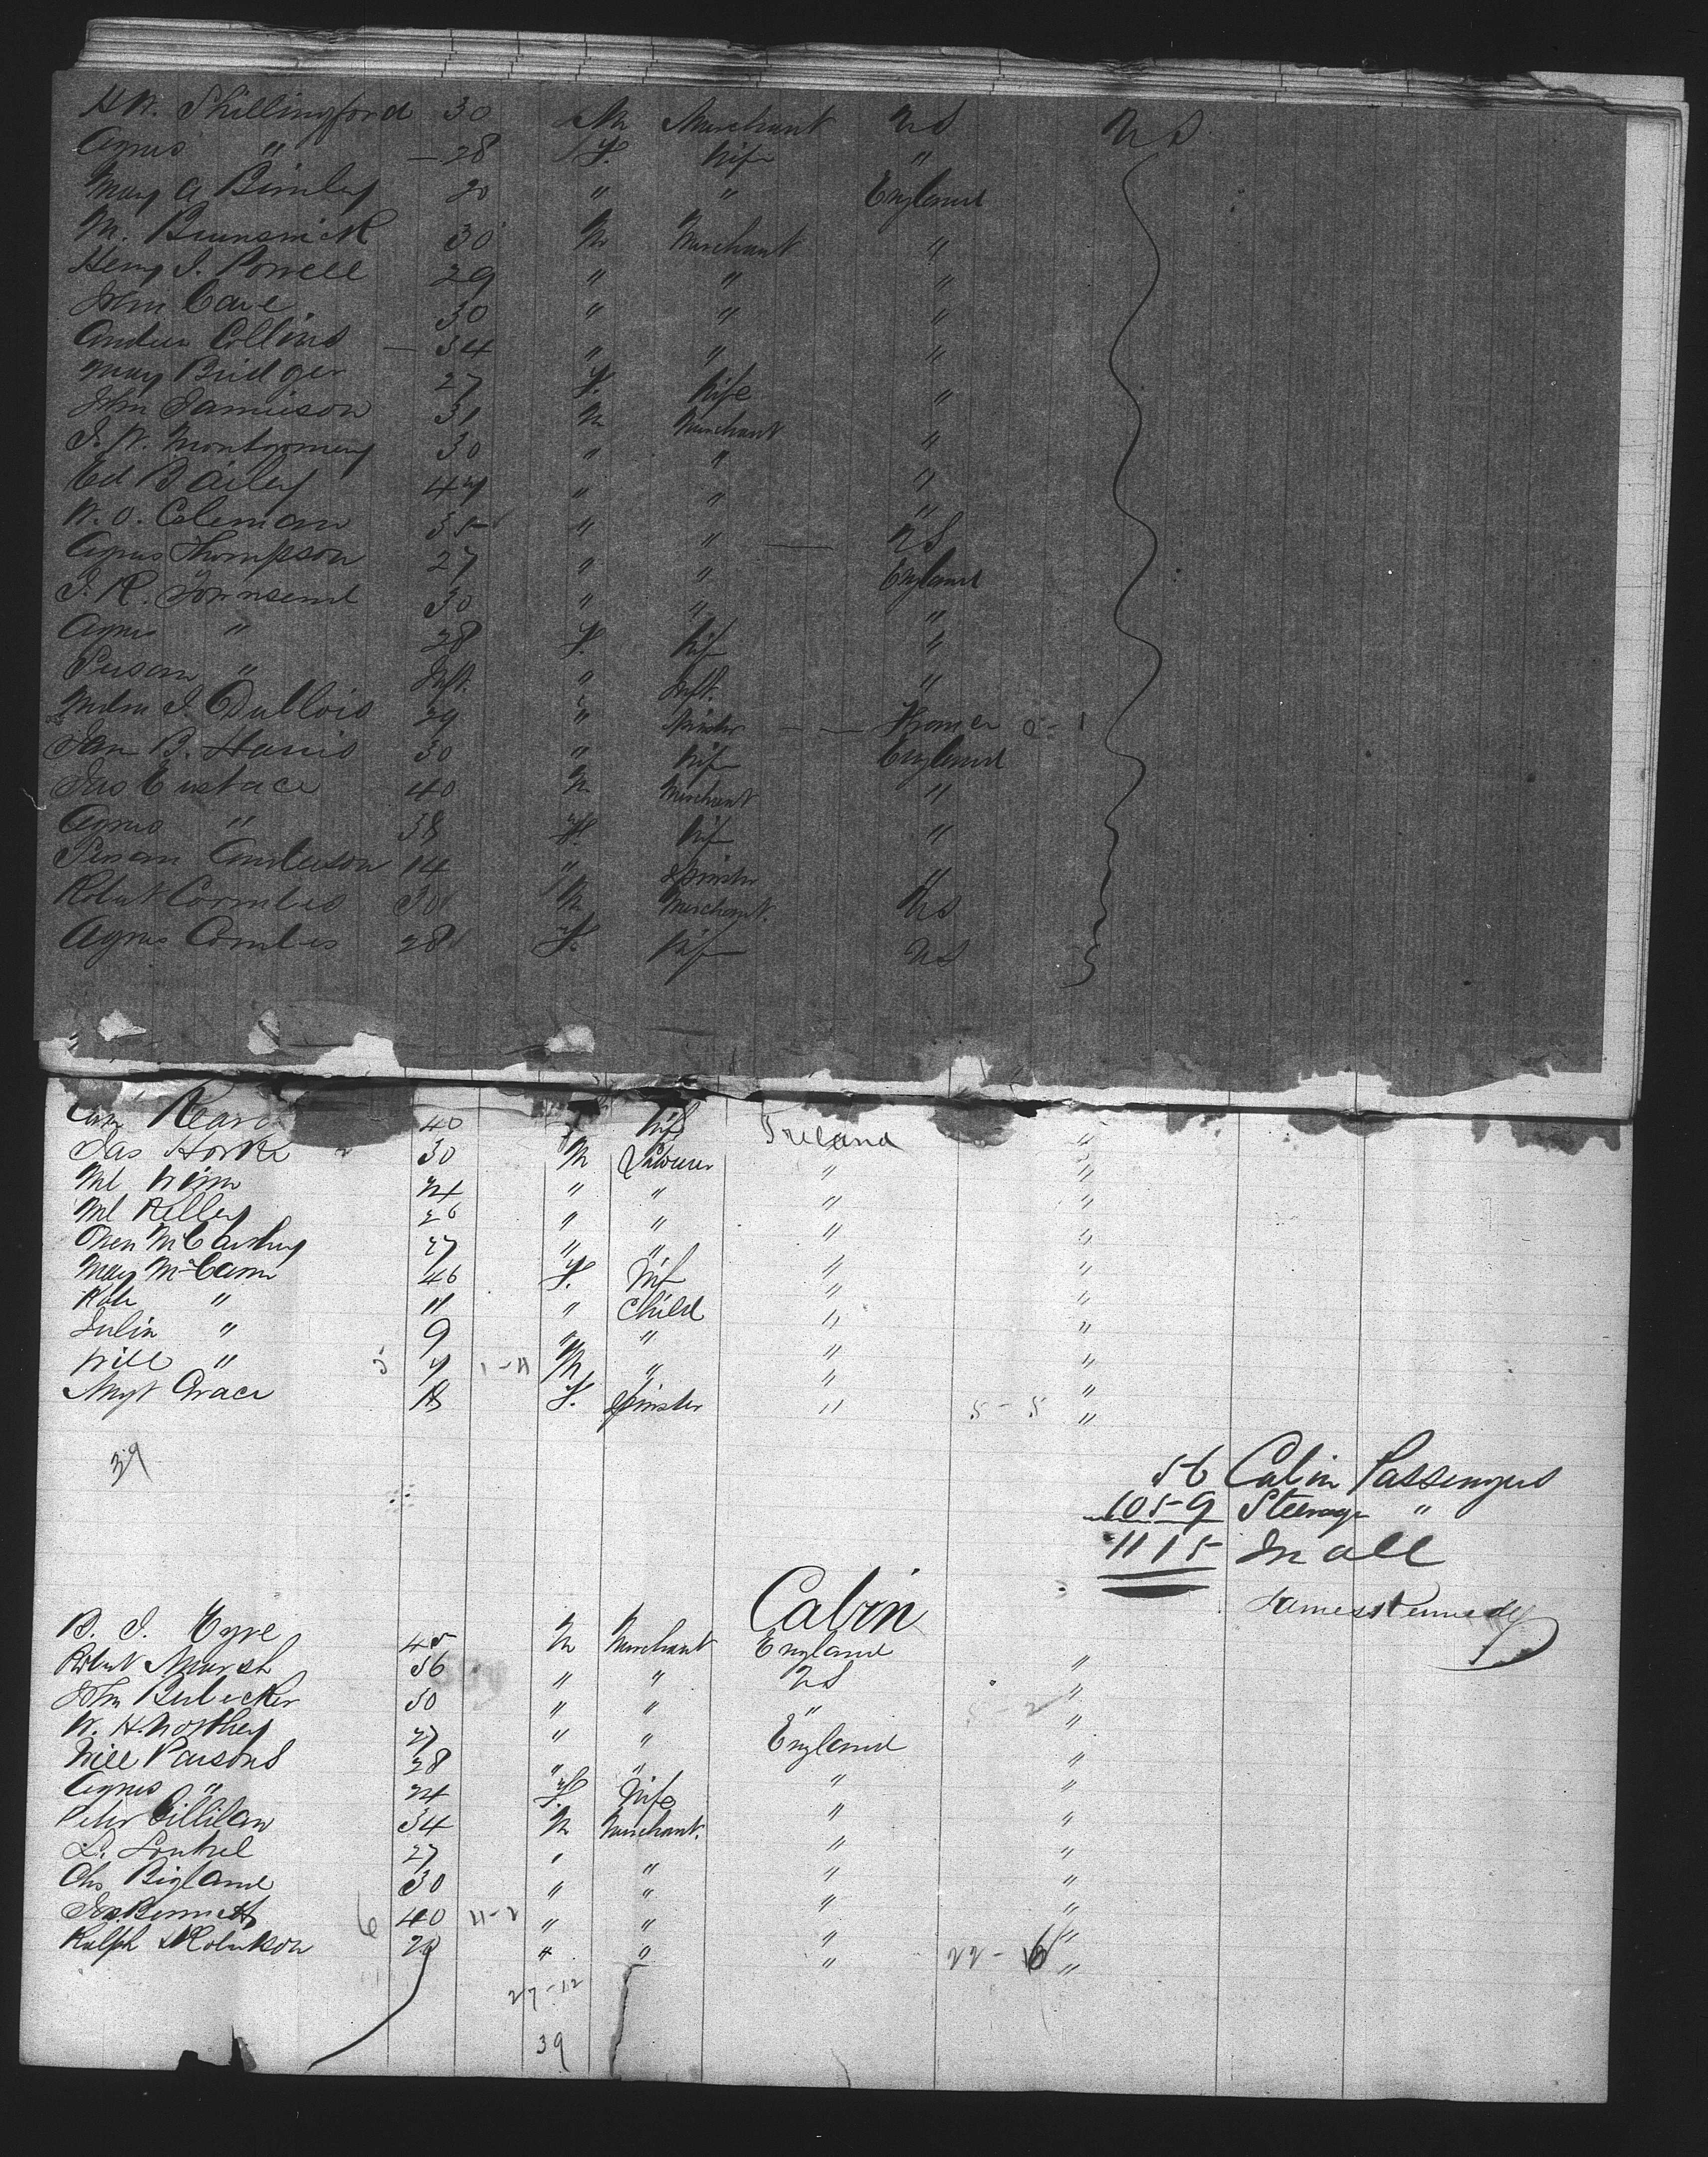 H W. Shillingford 30 M Merchant US US
Agnes " 28 F. Wife "
Mary A Birnley 20 " " England
M. Brunswick 30 M Merchant "
Henry J. Powell 29 " " "
John Cave 30 " " "
Andrew Collins 34 " " "
Mary Bridger 27 F. Wife "
John Jamieson 31 M Merchant "
J. W. Montgomery 30 " " "
Ed Bailey 47 " " "
W. O. Coleman 35 " " US
Agnes Thompson 27 " " England
J. R. Townsend 30 " " "
Agnes " 28 F. Wife "
Susan " Inft. " Inft. "
J. DuBlois 29 " Spinster France
Jan B. Harris 30 " Wife England
Jas Eustace 40 M Merchant "
Agnes " 38 F. Wife "
Susan Anderson 14 " Spinster "
Robert Combes 30 M Merchant. US
Agnes Combes 28 F. Wife US
40 Wife Ireland "
Jas 30 M Labourer " "
Ml Winn 24 " " " "
Ml Kelley 26 " " " "
Owen McCarthy 27 " " " "
Mary McCann 46 F. Wife " "
Kate " 11 " Child " "
Julia " 9 " " " "
Will " 5 7 1-11 M " " "
Mgt Grace 18 F. Spinster " 5-5 "
39
56 Cabin Passengers
1059 Steerage "
1115 In all
James Kennedy
Cabin
B. J. Eyre 45 M Merchant England "
Robert Marsh 56 " " US "
John Bubecker 50 " " " 5-2 "
W. H. Northey 27 " " England "
Will Parsons 28 " " " "
Agnes " 24 F. Wife " "
Peter Gillilan 34 M Merchant. " "
L. 27 " " " "
Chs Bigland 30 " " " "
Jas. Bennett 6 40 11-2 " " " "
Ralph Robinson 28 " " " 22-16 "
27-12
39